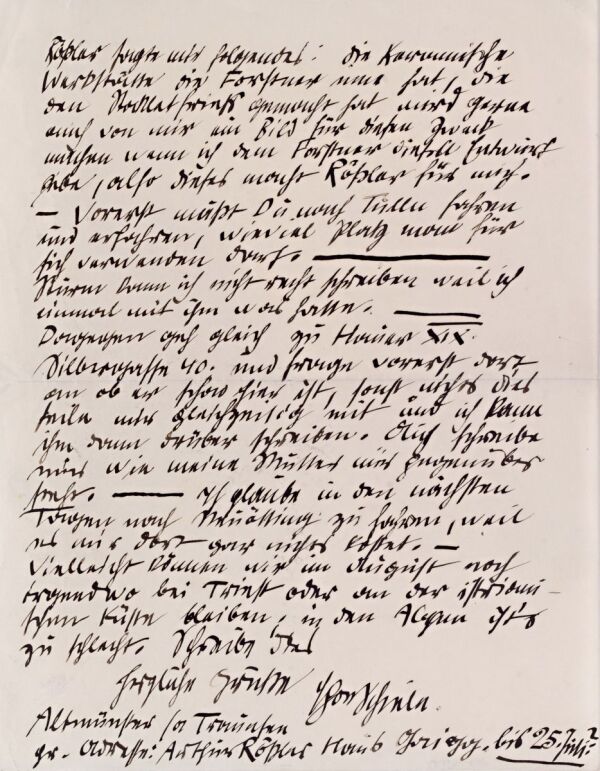 Rößler sagte mir folgendes: die Keramische
Werkstätte die Forstner inne hat, die
den Stocletfries gemacht hat wird gerne
auch von mir ein Bild für diesen Zweck
machen wenn ich dem Forstner diesen Entwurf
gebe, also dieses macht Rößler für mich.
— Vorerst mußt Du nach Tulln fahren
und erfahren, wieviel Platz man für
sich verwenden darf. —
kann ich nicht recht schreiben weil ich
einmal mit ihm was hatte. —
Dagegen geh gleich zu Hauer XIX.
Silbergasse 40. und frage vorerst dort
an ob er schon hier ist, sonst nichts dies
teile mir gleichzeitig mit und ich kann
ihm dann drüber schreiben. Auch schreibe
mir wie meine Mutter mir gegenüber
steht. — Ich glaube in den nächsten
Tagen nach Neuötting zu fahren, weil
es mir dort gar nichts kostet. —
Vielleicht können wir im August noch
irgendwo bei Triest oder an der istriani-
schen Küste bleiben, in den Alpen ist's
zu schlecht. Schreibe dies
herzliche Grüße Egon Schiele.
Altmünster /a Traunsee
gr. Adresse: Arthur Rößler Haus bis 25. Juli?